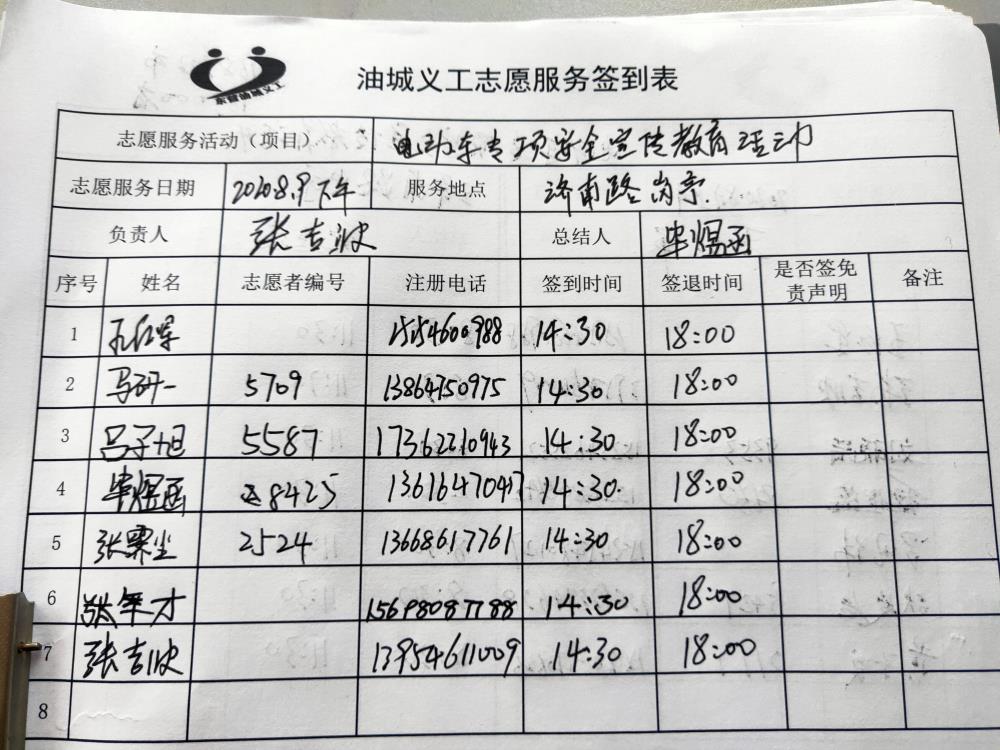 东营油城义工
油城义工志愿服务签到表
志愿服务活动（项目） 电动车专项安全宣传教育活动
志愿服务日期 2020.8.9下午 服务地点 济南路岗亭.
负责人 张吉波 总结人 毕煜函
序号 姓名 志愿者编号 注册电话 签到时间 签退时间 是否签免责声明 备注
1 孔红军 15154600988 14:30 18:00
2 马研一 5709 13864750975 14:30 18:00
3 吕子旭 5587 17362210943 14:30 18:00
4 毕煜函 8425 13616470417 14:30. 18:00
5 张霁尘 2524 13668617761 14:30 18:00
6 张军才 15698087788 14:30 18:00
7 张吉波 13954611009 14:30 18:00
8